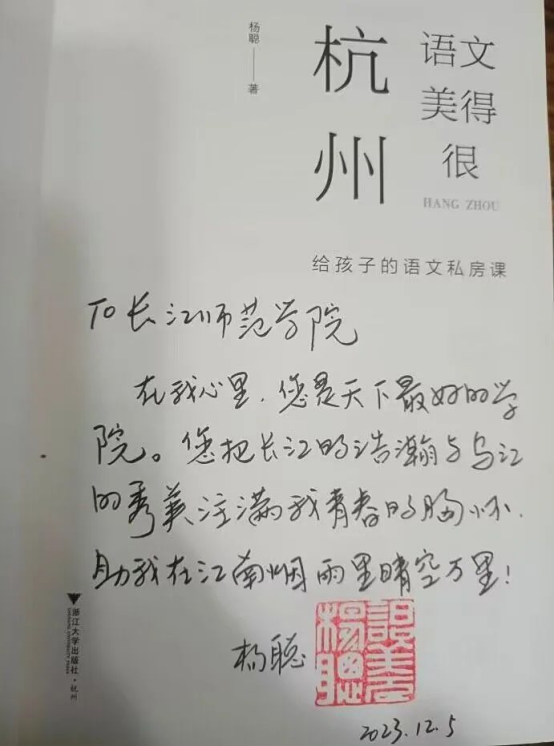 杨聪——著
杭州
语文
美得
很
HANG ZHOU
给孩子的语文私房课
To 长江师范学院
在我心里，您是天下最好的学
院。您把长江的浩瀚与乌江
的秀美注满我青春的胸怀，
助我在江南烟雨里晴空万里！
杨聪
2023.12.5
浙江大学出版社
·杭州